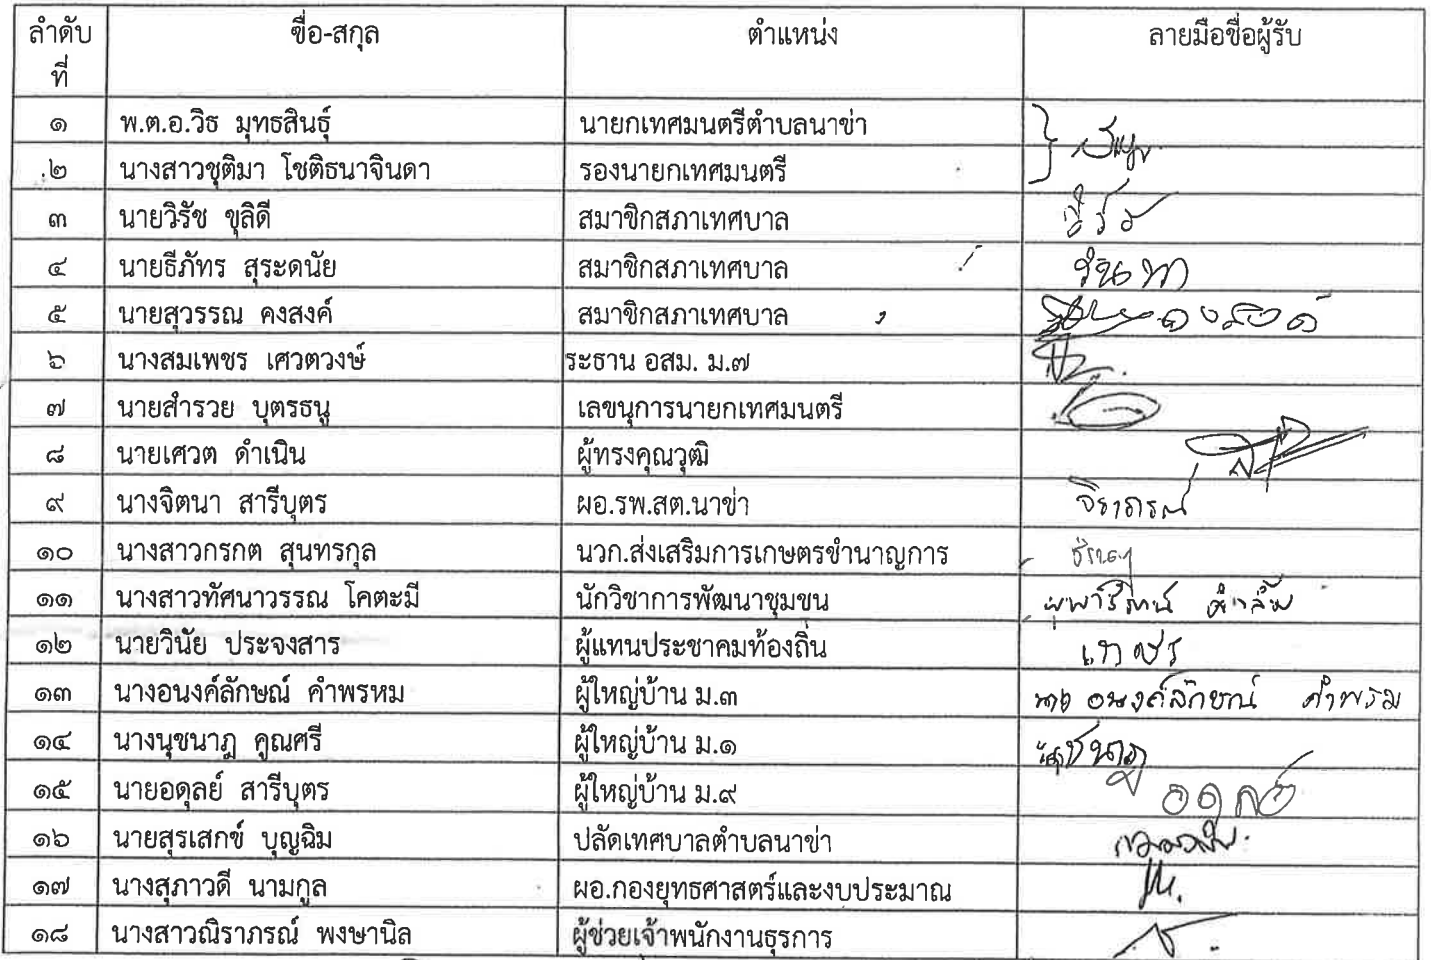 ลำดับ ชื่อ-สกุล ตำแหน่ง ลายมือชื่อผู้รับ
ที่
๑ พ.ต.อ.วิธ มุทธสินธุ์ นายกเทศมนตรีตำบลนาข่า
๒ นางสาวชุติมา โชติธนาจินดา รองนายกเทศมนตรี
๓ นายวิรัช ขุลิดี สมาชิกสภาเทศบาล
๔ นายธีภัทร สุระดนัย สมาชิกสภาเทศบาล
๕ นายสุวรรณ คงสงค์ สมาชิกสภาเทศบาล
๖ นางสมเพชร เศวตวงษ์ ระธาน อสม. ม.๗
๗ นายสำรวย บุตรธนู เลขนุการนายกเทศมนตรี
๘ นายเศวต ดำเนิน ผู้ทรงคุณวุฒิ
๙ นางจิตนา สารีบุตร ผอ.รพ.สต.นาข่า
๑๐ นางสาวกรกต สุนทรกุล นวก.ส่งเสริมการเกษตรชำนาญการ
๑๑ นางสาวทัศนาวรรณ โคตะมี นักวิชาการพัฒนาชุมชน
๑๒ นายวินัย ประจงสาร ผู้แทนประชาคมท้องถิ่น
๑๓ นางอนงค์ลักษณ์ คำพรหม ผู้ใหญ่บ้าน ม.๓ นาง อนงค์ลักษณ์ คำพรม
๑๔ นางนุชนาฎ คูณศรี ผู้ใหญ่บ้าน ม.๑
๑๕ นายอดุลย์ สารีบุตร ผู้ใหญ่บ้าน ม.๙
๑๖ นายสุรเสกข์ บุญฉิม ปลัดเทศบาลตำบลนาข่า
๑๗ นางสุภาวดี นามกูล ผอ.กองยุทธศาสตร์และงบประมาณ
๑๘ นางสาวณิราภรณ์ พงษานิล ผู้ช่วยเจ้าพนักงานธุรการ